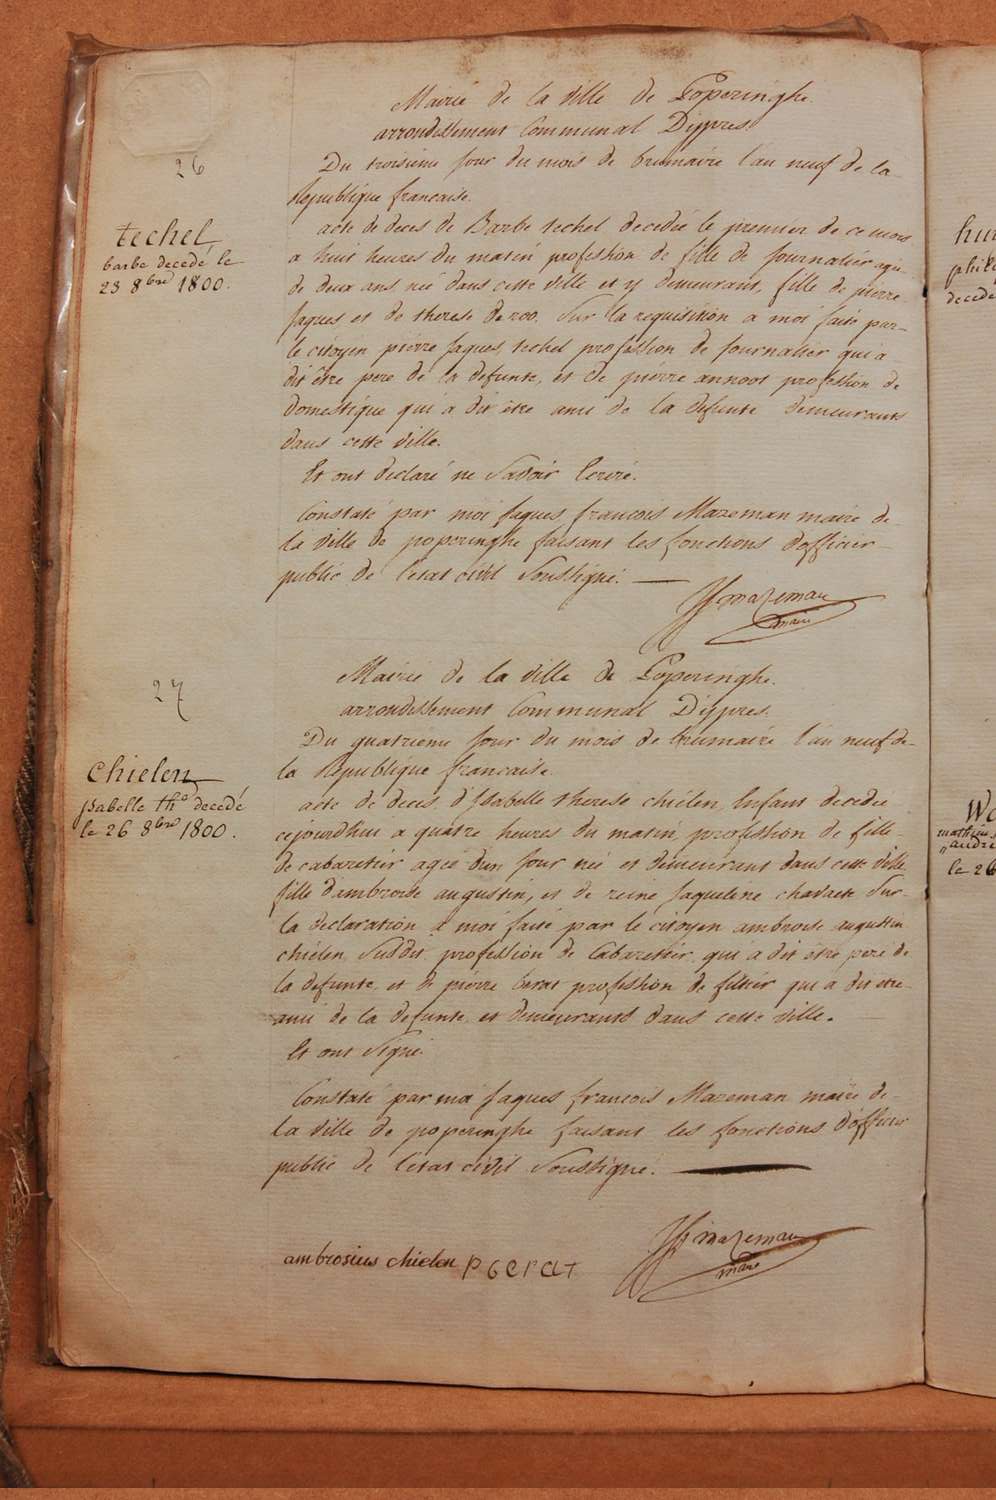 26
techel
barbe decedé le
23 8bre 1800.
Mairie de la ville de Poperinghe.
arrondissement Communal Dijpres
Du troisieme jour du mois de brumaire l'an neuf de la
Republique francaise.
acte de deces de Barbe techel decedée le premier de ce mois
a huit heures du matin profession de fille de journalier agée
de deux ans née dans cette ville et y demeurant, fille de pierre
jaques et de therese de roo. Sur la requisition a moi faite par
le citoyen pierre jaques techel profession de journalier qui a
dit être pere de la defunte, et de pierre annoot profession de
domestique qui a dit être ami de la defunte demeurants
dans cette ville.
Et ont declaré ne savoir Ecrire.
Constaté par moi jaques francois Mazeman maire de
la ville de poperinghe faisant les fonctions d'officier
public de l'etat civil soussigné.
JJ mazeman
maire
27
Chielen
ysabelle the decedé
le 26 8bre 1800.
Mairie de la ville de Poperinghe.
arrondissement Communal D'ijpres.
Du quatrieme jour du mois de brumaire l'an neuf de
la Republique francaise.
acte de deces d'ysabelle therese chielen Enfant decedée
cejourdhui a quatre heures du matin, profession de fille
de cabaretier agée d'un jour née et demeurant dans cette ville
fille d'ambroise augustin, et de reine jaqueline Sur
la declaration a moi faite par le citoyen ambroise augustin
chielen susdit profession de Cabaretier qui a dit être pere de
la defunte, et de pierre profession de filtier qui a dit etre
ami de la defunte et demeurants dans cette ville.
Et ont signé.
Constaté par moi jaques francois Mazeman maire de
la ville de poperinghe faisant les fonctions d'officier
public de l'etat civil soussigné.
ambrosius chielen
JJ mazeman
maire
decedé
le 26